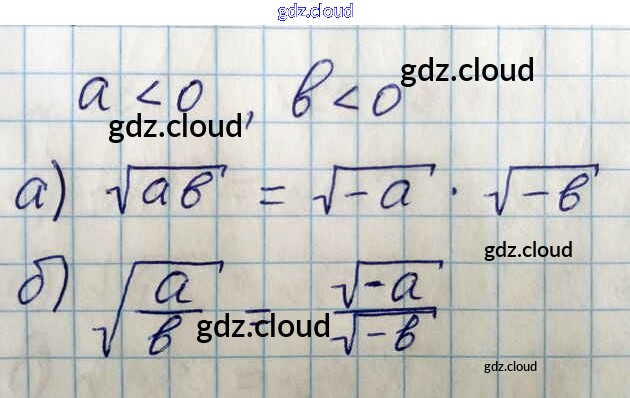 gdz.cloud
a < 0, b < 0 gdz.cloud
gdz.cloud
а) √ab = √-a · √-b
gdz.cloud
б) √(a/b) = √-a/√-b
gdz.cloud
gdz.cloud